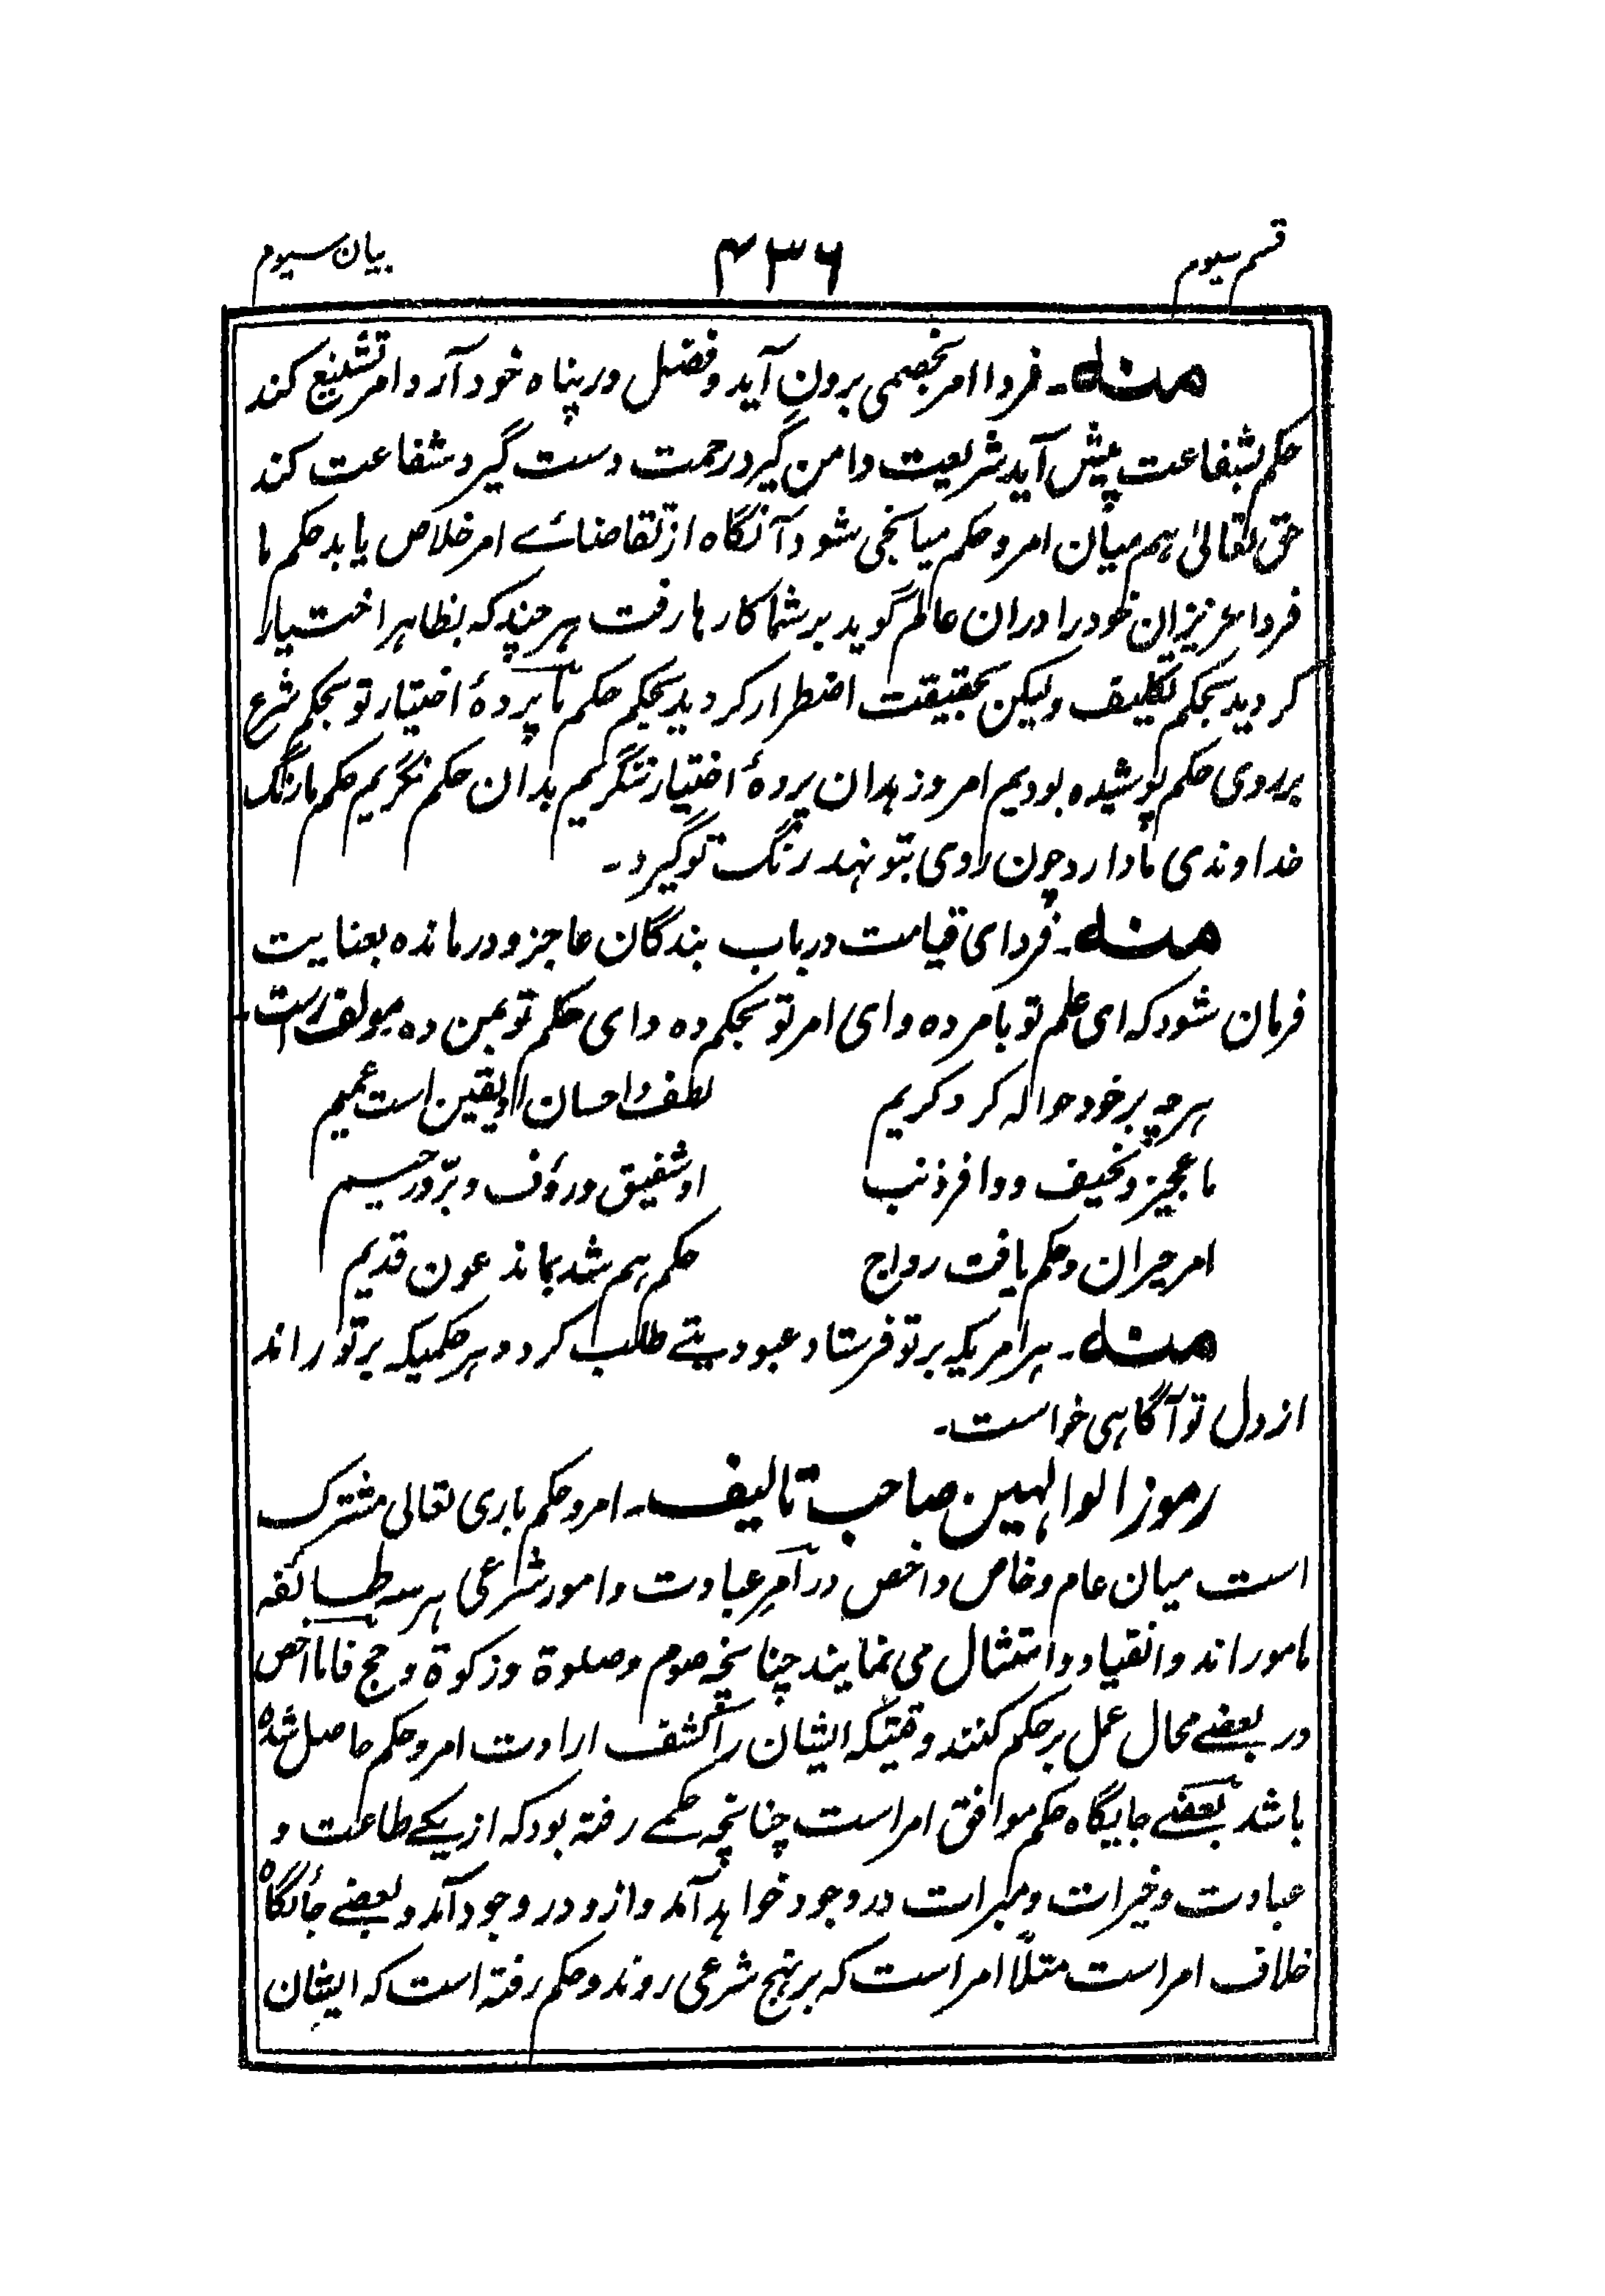 قسم سیوم
۴۳۶
بیان سیوم
منه۔ فردا امر بخصمی برون آید و فضل در پناه خود آرد امر تشنیع کند
حکم بشفاعت پیش آید شریعت دامن گیرد رحمت دست گیرد شفاعت کند
حق تعالیٰ هم میان امر و حکم میانجی شود آنگاه از تقاضائے امر خلاص یابد حکم ما
فردا عزیزان خود را دران عالم گوید بر شما کارها رفت هر چند که بظاهر اختیار
کردید بحکم تکلیف ولیکن بحقیقت اضطرار کردید بحکم حکم ما پردهٔ اختیار تو بحکم شرع
بر روی حکم پوشیده بودیم امروز بدان پردهٔ اختیار ننگریم بدان حکم نگریم حکم ما رنگ
خداوندی ما دارد چون روی بتو نهد رنگ تو گیرد۔
منه۔ فردای قیامت در باب بندگان عاجز و درمانده بعنایت
فرمان شود که ای علم تو بامر ده و ای امر تو بحکم ده و ای حکم تو بمن ده مولف راست۔
هرچه بر خود حواله کرد کریم
لطف و احسان او یقین است عمیم
ما عجیز و نحیف و وافر ذنب
او شفیق و رؤف و برّ و رحیم
امر حیران و حکم یافت رواج
حکم هم شد بماند عون قدیم
منه۔ هر امریکه بر تو فرستاد عبودیتے طلب کرد و هر حکمیکه بر تو راند
از دل تو آگاهی خواست۔
رموز الوالهین۔ صاحب تالیف۔ امر و حکم باری تعالی مشترک
است میان عام و خاص و اخص در امرِ عبادت و امور شرعی هر سه طائفه
مامور اند و انقیاد و امتثال می نمایند چنانچه صوم و صلوة و زکوة و حج فاما اخص
در بعضے محال عمل بر حکم کنند وقتیکه ایشان را کشف ارادت امر و حکم حاصل شده
باشد بعضے جایگاه حکم موافق امر است چنانچه حکمے رفته بود که از یکے طاعت و
عبادت و خیرات و مبرات در وجود خواهد آمد و ازو در وجود آمد و بعضے جائگاه
خلاف امر است مثلاً امر است که بر نهج شرعی روند و حکم رفته است که ایشان